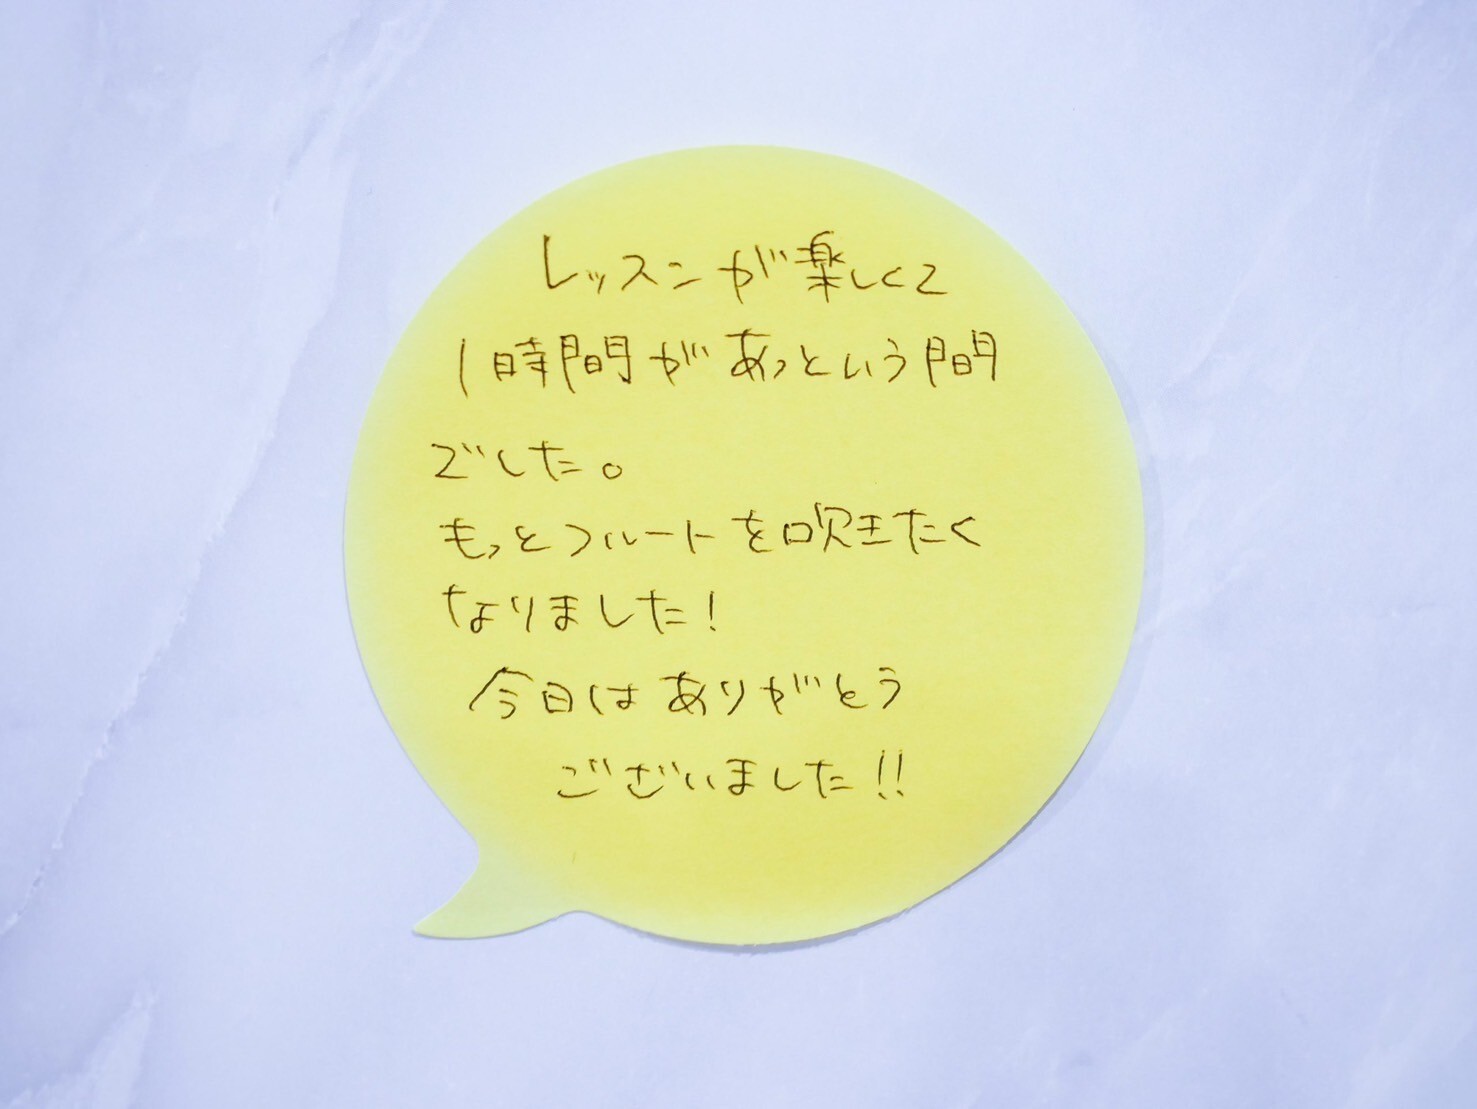 レッスンが楽しくて
1時間があっという間
でした。
もっとフルートを吹きたく
なりました!
今日はありがとう
ございました!!